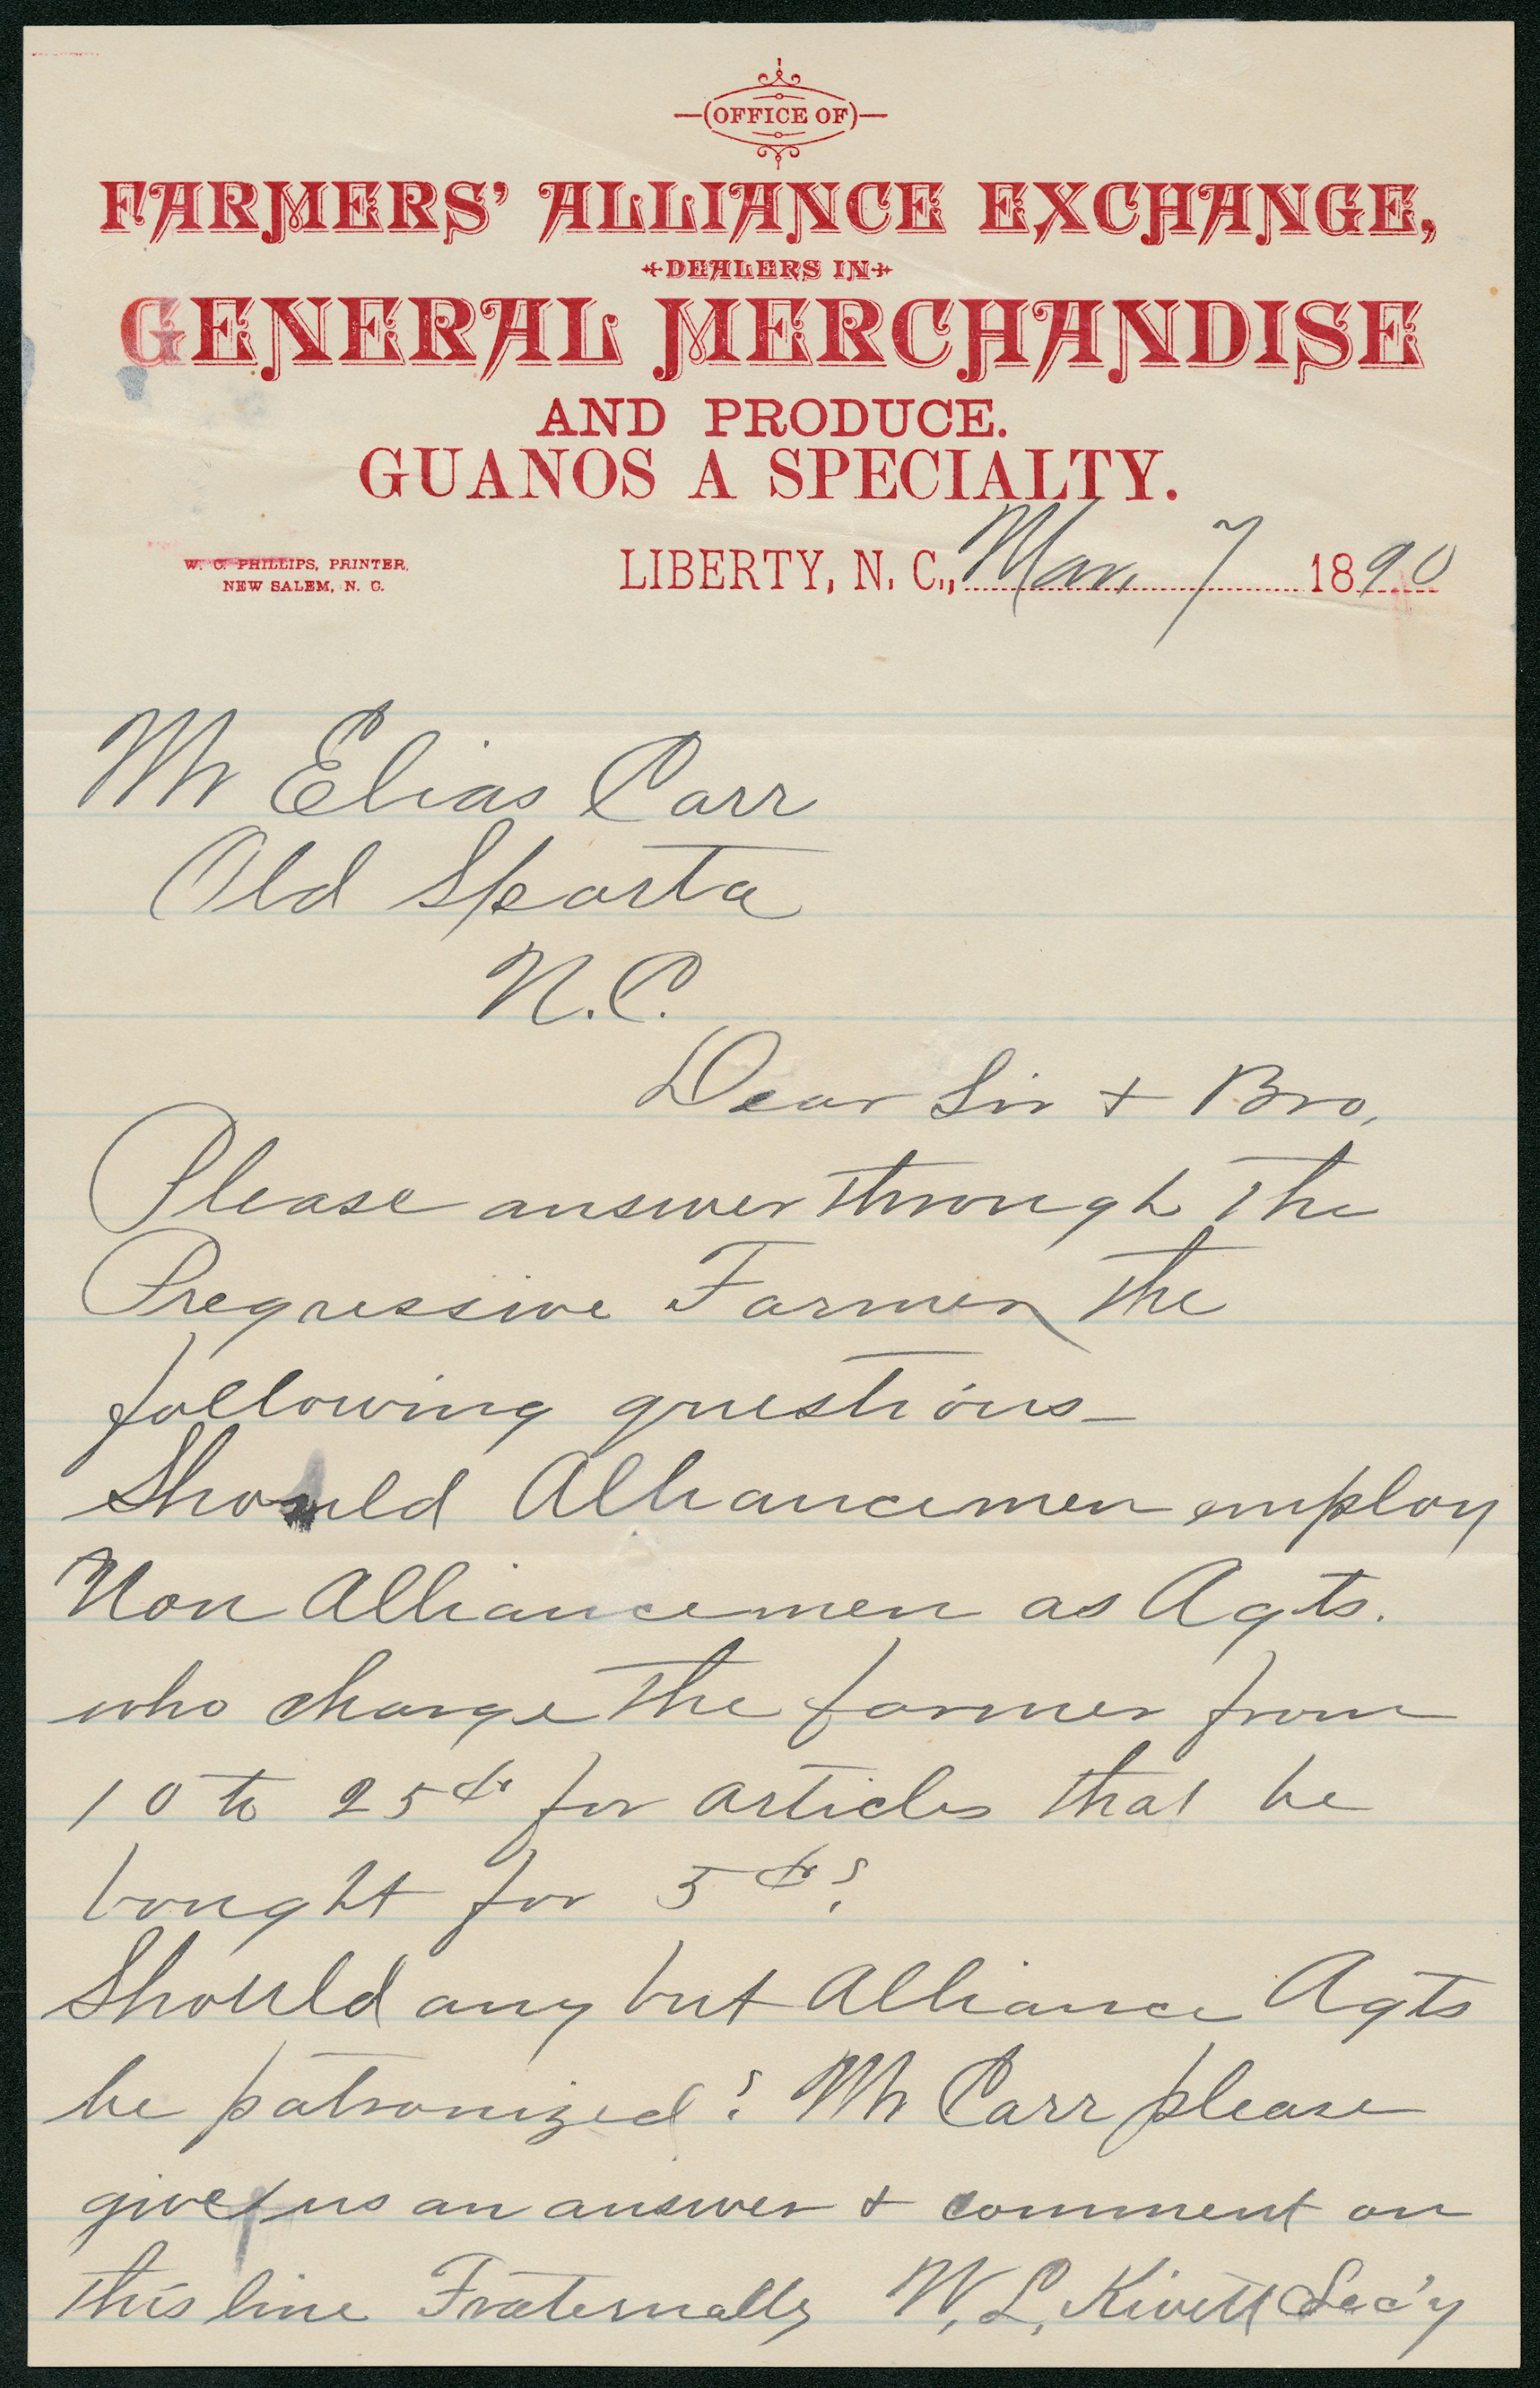 OFFICE OF
FARMERS' ALLIANCE EXCHANGE,
DEALERS IN
GENERAL MERCHANDISE
AND PRODUCE.
GUANOS A SPECIALTY.
W. C. PHILLIPS, PRINTER,
NEW SALEM, N. C.
LIBERTY, N. C., Mar. 7 1890
Mr Elias Carr
Old Sparta
N.C.
Dear Sir + Bro,
Please answer through the
Progressive Farmer the
following questions—
Should Alliancemen employ
Non Alliancemen as Agts.
who charge the farmer from
10 to 25¢ for articles that he
bought for 5¢?
Should any but Alliance Agts
be patronized? Mr Carr please
give us an answer + comment on
this line Fraternally W. L. Kivett Sec'y